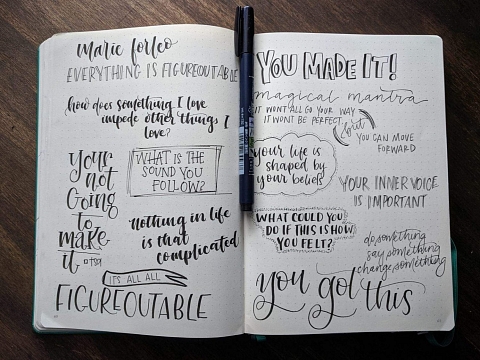 marie forleo
EVERYTHING IS FIGUREOUTABLE
how does something I love
impede other things I
love?
your
not
Going
to
make
it
WHAT IS THE
SOUND YOU
FOLLOW?
nothing in life
is that
complicated
IT'S ALL ALL
FIGUREOUTABLE
YOU MADE IT!
magical mantra
IT WONT ALL GO YOUR WAY
IT WONT BE PERFECT
but
YOU CAN MOVE
FORWARD
your life is
shaped by
your beliefs
YOUR INNER VOICE
IS IMPORTANT
WHAT COULD YOU
DO IF THIS IS HOW
YOU FELT?
do something
say something
change something
you got this